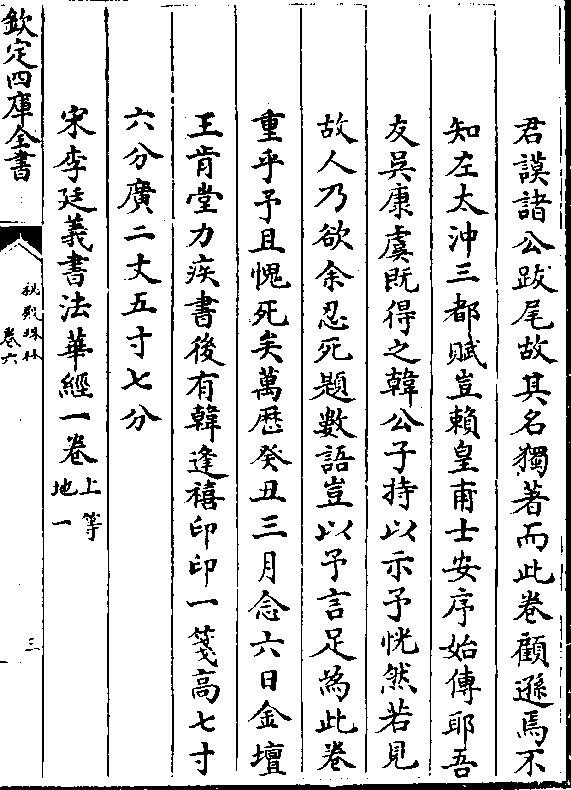 君謨諸公跋尾故其名獨著而此卷顧遜焉不
知左太沖三都賦豈賴皇甫士安序始傳耶吾
友吳康虞既得之韓公子持以示予恍然若見
故人乃欲余忍死題數語豈以予言足為此卷
重乎予且愧死矣萬歷癸丑三月念六日金壇
王肯堂力疾書後有韓逢禧印印一箋高七寸
六分廣二丈五寸七分
宋李廷義書法華經一卷上等地一
欽定四庫全書
秘殿珠林
卷六
三